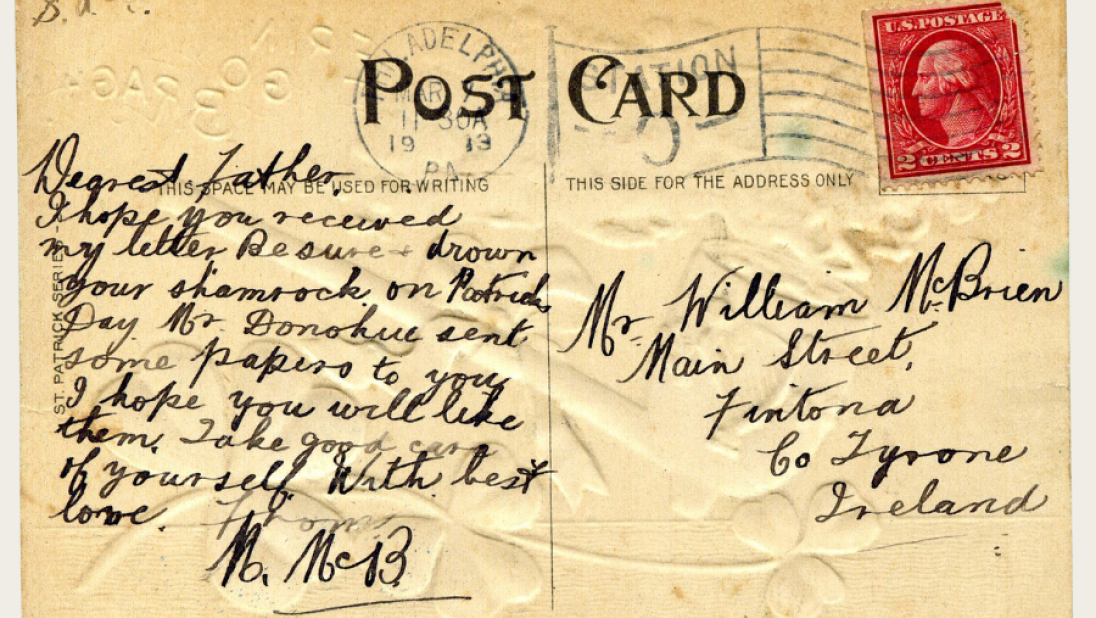 POST CARD
U.S. POSTAGE
2 CENTS 2
PHILADELPHIA
MAR
11 30A
19 13
PA.
STATION
THIS SPACE MAY BE USED FOR WRITING
THIS SIDE FOR THE ADDRESS ONLY
ST. PATRICK SERIES
ERIN
GO
BRAGH
Dearest Father,
I hope you received
my letter Be sure + drown
your shamrock on Patricks
Day Mr. Donohue sent
some papers to you,
I hope you will like
them. Take good care
of yourself. With best
love. From
M. McB.
Mr. William McBrien
Main Street,
Fintona
Co Tyrone
Ireland